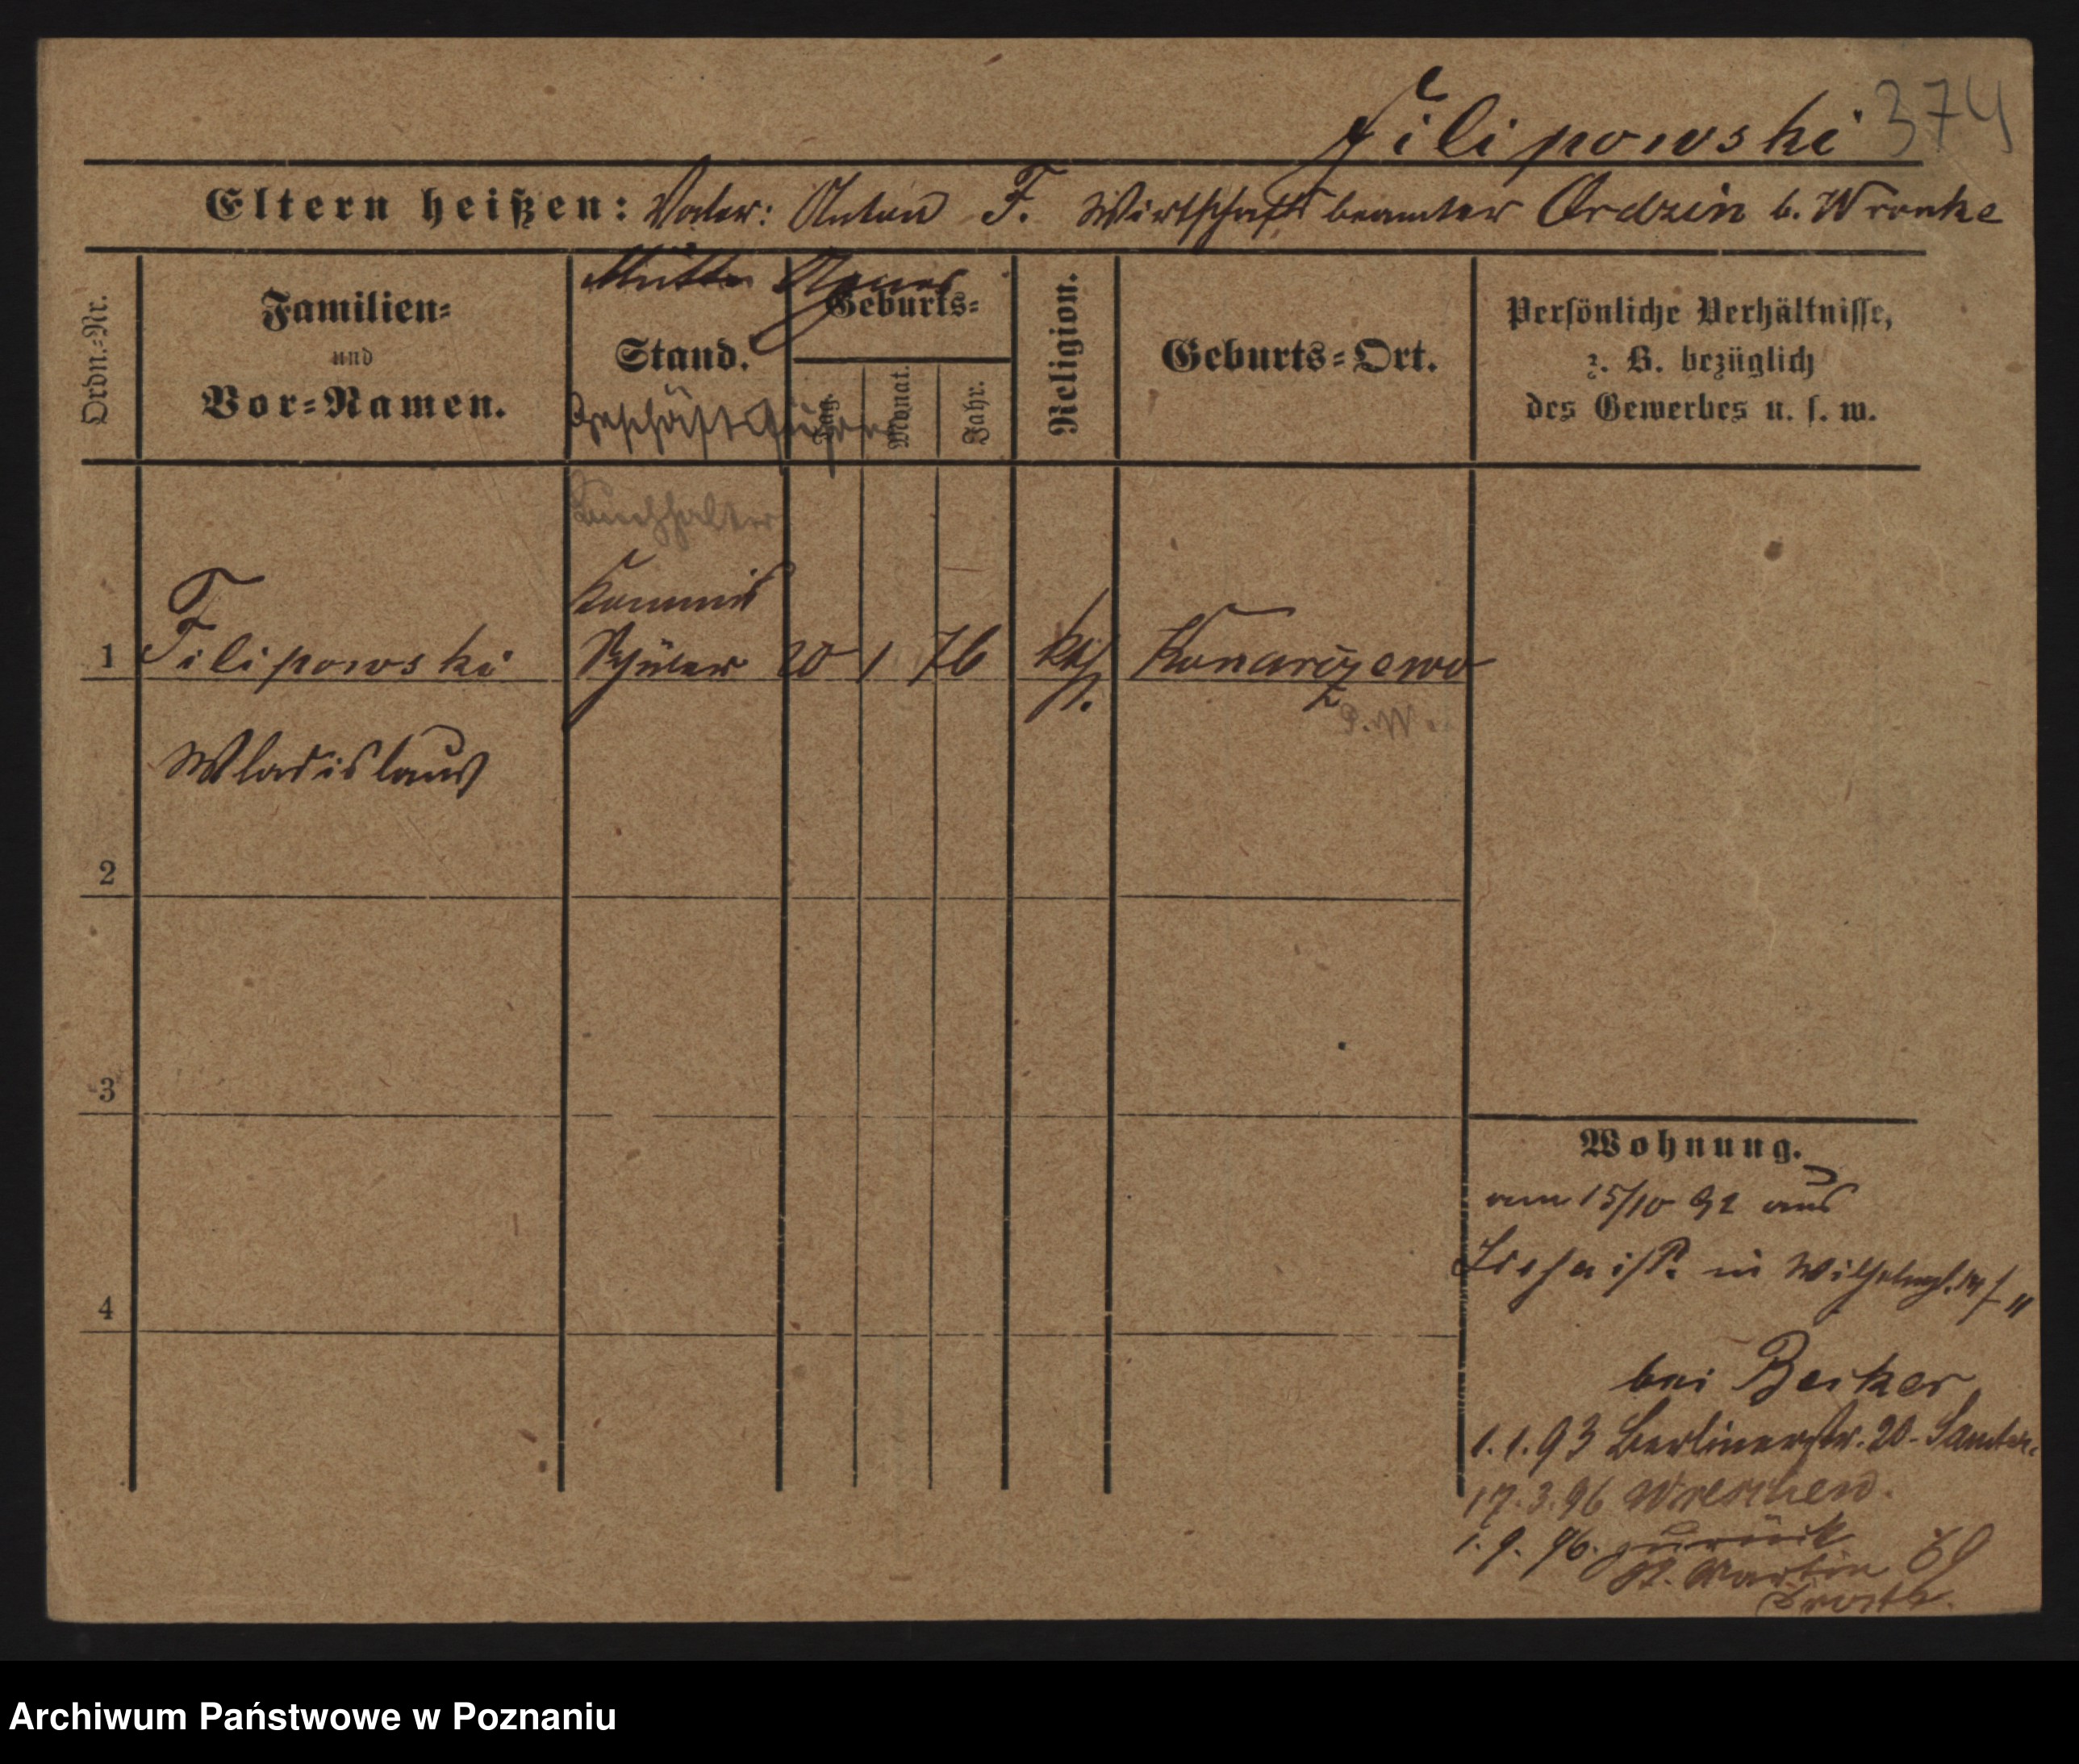 Filipowski 374
Eltern heißen: Vater: Anton F. Wirtschaftsbeamter Ordzin b. Wronke
Mutter Agnes
Ordn.-Nr.
Familien-
und
Vor-Namen.
Stand.
Geschäftsführer
Geburts-
Tag.
Monat.
Jahr.
Religion.
Geburts-Ort.
Persönliche Verhältnisse,
z. B. bezüglich
des Gewerbes u. s. w.
Buchhalter
Kommis
1 Filipowski Schüler 20 1 76 kth. Konarzewo
Wladislaus
2
3
4
Wohnung.
am 15/10 92 aus
in Wilhelmpl.
bei Becker
1.1.93 Berlinerstr. 20 - Samter.
17.3.96 Wreschen.
1.9.96. zurück
St. Martin
Archiwum Państwowe w Poznaniu